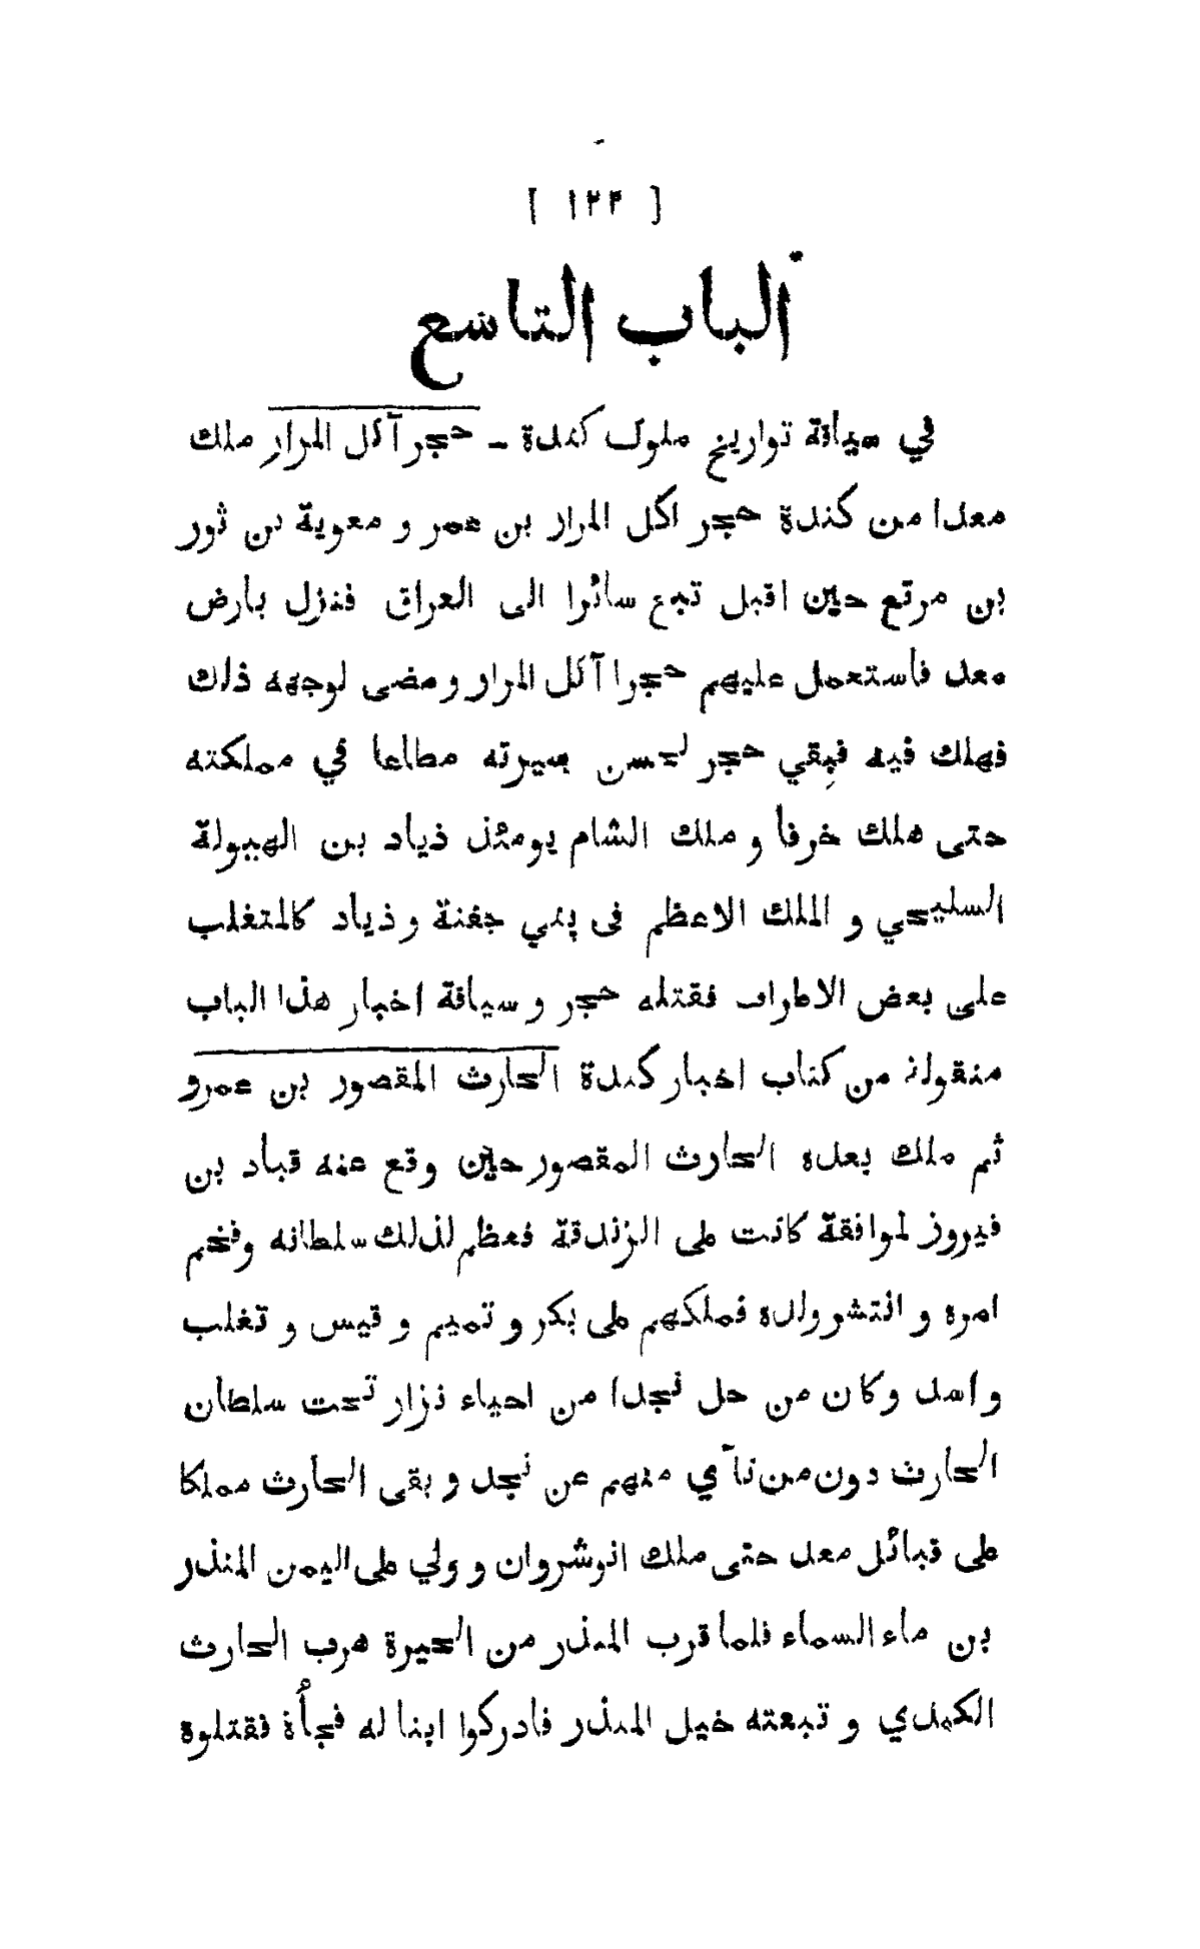 [ ١٢٣ ]
الباب التاسع
في سياقة تواريخ ملوك كندة - حجر آكل المرار ملك
معدا من كندة حجر اكل المرار بن عمر و معوية بن ثور
بن مرتع حين اقبل تبع سائرا الى العراق فنزل بارض
معد فاستعمل عليهم حجرا آكل المرار ومضى لوجهه ذلك
فهلك فيه فبقي حجر لحسن سيرته مطاعا في مملكته
حتى هلك خرفا و ملك الشام يومئذ ذياد بن الهبولة
السليحي و الملك الاعظم في بني جفنة و ذياد كالمتغلب
على بعض الاطراف فقتله حجر و سياقة اخبار هذا الباب
منقولة من كتاب اخبار كندة الحارث المقصور بن عمرو
ثم ملك بعده الحارث المقصور حين وقع عنه قباد بن
فيروز لموافقة كانت على الزندقة فعظم لذلك سلطانه وفخم
امره و انتشر ولده فملكهم على بكر و تميم و قيس و تغلب
و اسد وكان من حل نجدا من احياء نزار تحت سلطان
الحارث دون من نآي منهم عن نجد و بقى الحارث مملكا
على قبائل معد حتى ملك انوشروان و ولي على اليمن المنذر
بن ماء السماء فلما قرب المنذر من الحيرة هرب الحارث
الكندي و تبعته خيل المنذر فادركوا ابنا له فجأة فقتلوة